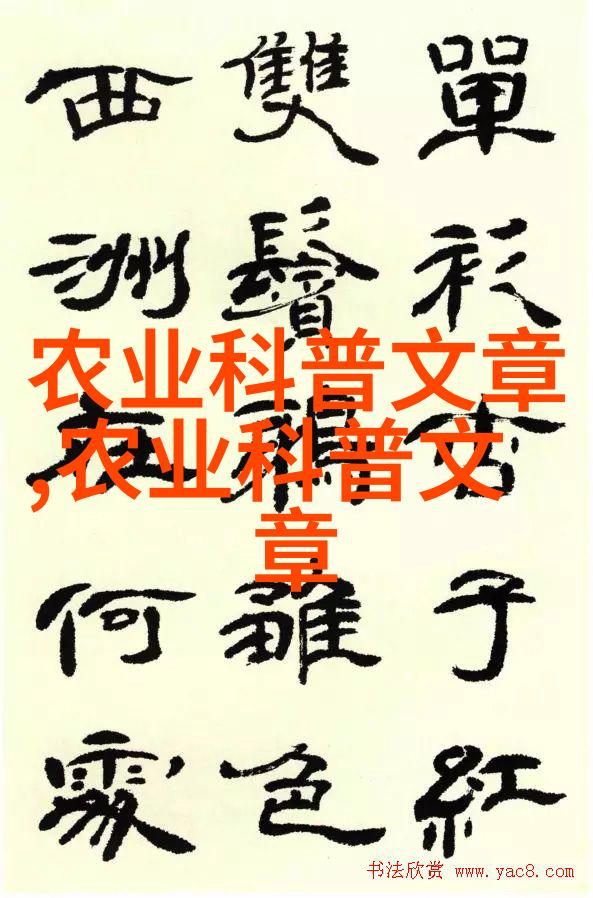 單衫杏子紅
雙鬢鴉雛色
西洲在何處
农业科普文章
,农业科普文
章
书法欣赏 www.yac8.com